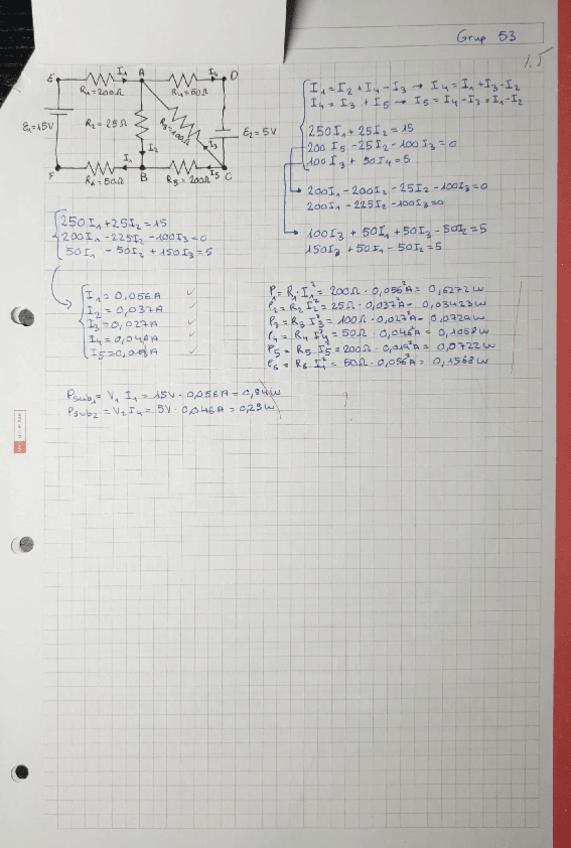 Grup 53
1.5
E I₁ A I₄ D
R₁=200Ω R₄=50Ω
ε₁=15V R₂=25Ω R₃=100Ω ε₂=5V
I₂ I₃
F R₆=50Ω I₁ B R₅=200Ω I₅ C
I₁=I₂+I₄-I₃ → I₄=I₁+I₃-I₂
I₄=I₃+I₅ → I₅=I₄-I₃=I₁-I₂
250I₁+25I₂=15
200I₅-25I₂-100I₃=0
100I₃+50I₄=5
200I₁-200I₂-25I₂-100I₃=0
200I₁-225I₂-100I₃=0
100I₃+50I₁+50I₃-50I₂=5
150I₃+50I₁-50I₂=5
250I₁+25I₂=15
200I₁-225I₂-100I₃=0
50I₁-50I₂+150I₃=5
I₁=0,056A
I₂=0,037A
I₃=0,027A
I₄=0,046A
I₅=0,019A
P₁=R₁·I₁²=200Ω·0,056²A=0,6272W
P₂=R₂I₂²=25Ω·0,037²A=0,03423W
P₃=R₃I₃²=100Ω·0,027²A=0,0729W
P₄=R₄I₄²=50Ω·0,046²A=0,1058W
P₅=R₅I₅²=200Ω·0,019²A=0,0722W
P₆=R₆I₁²=50Ω·0,056²A=0,1568W
Psub₁=V₁I₁=15V·0,056A=0,84W
Psub₂=V₂I₄=5V·0,046A=0,23W
?